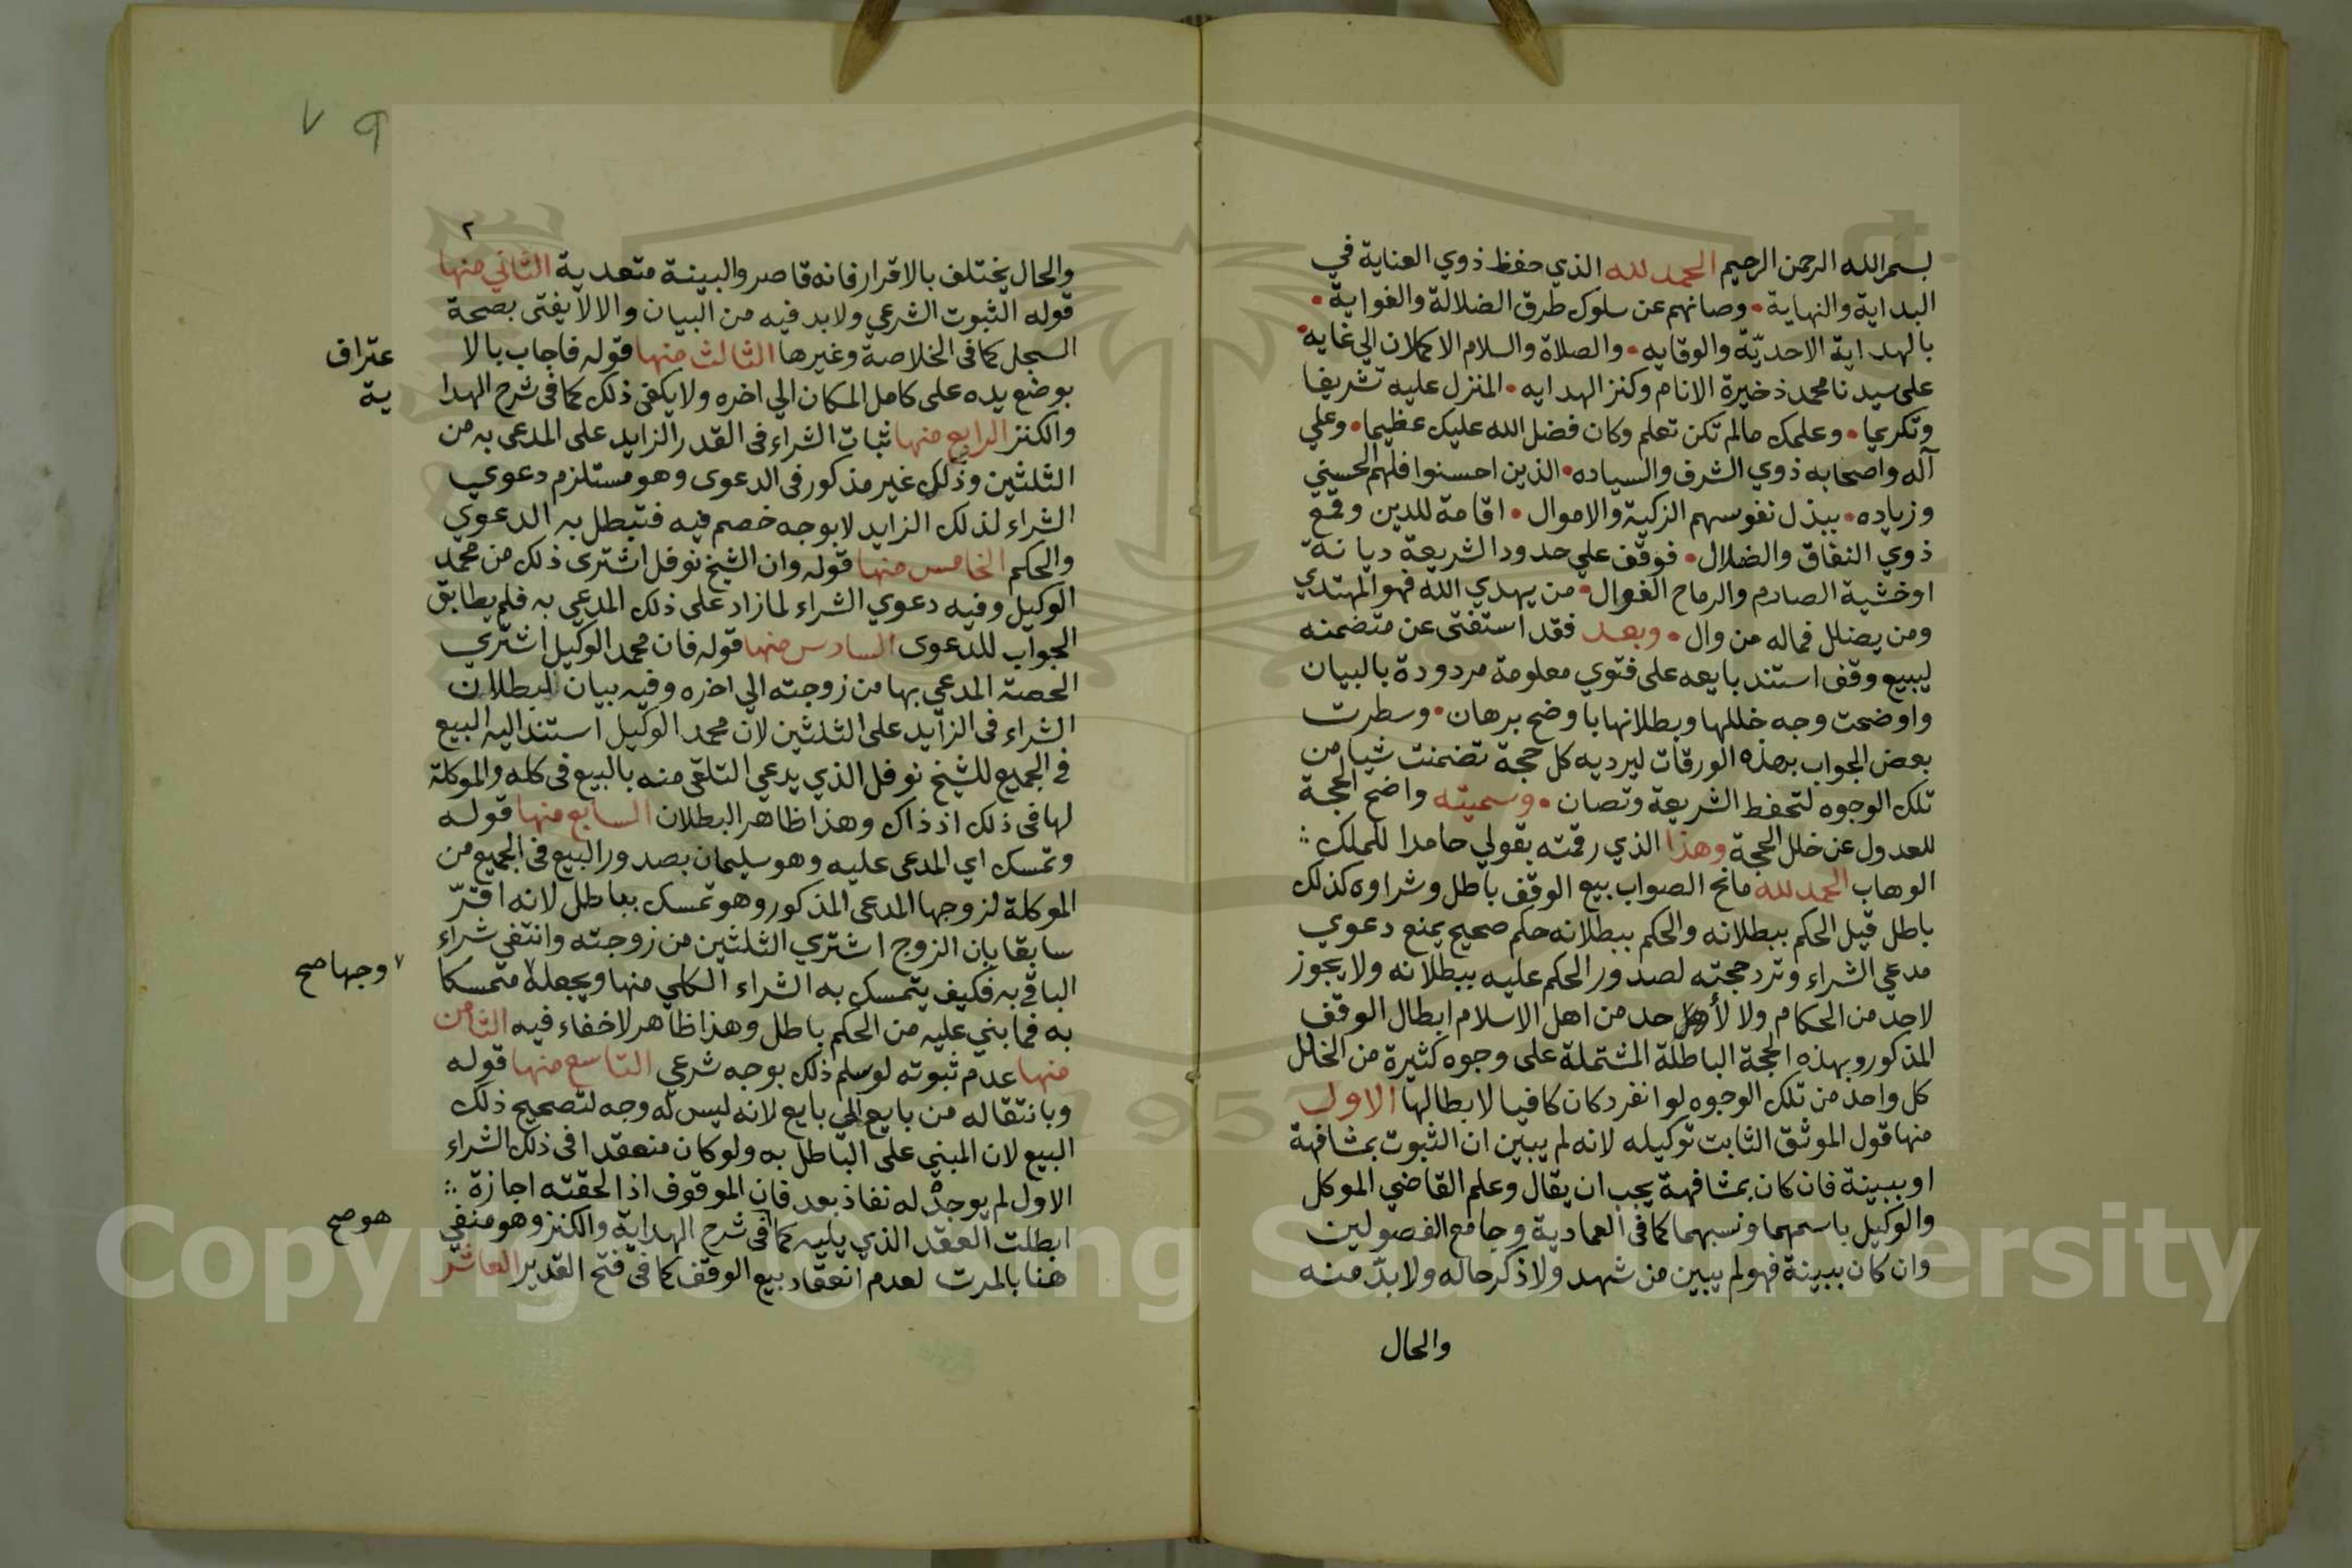 بسم الله الرحمن الرحيم الحمد لله الذي حفظ ذوي العناية في
البداية والنهاية • وصانهم عن سلوك طرق الضلالة والغواية •
بالهداية الاحديّة والوقايه • والصلاة والسلام الاكملان الي غايه •
على سيدنا محمد ذخيرة الانام وكنز الهدايه • المنزل عليه تشريفا
وتكريما • وعلمك مالم تكن تعلم وكان فضل الله عليك عظيما • وعلي
آله واصحابه ذوي الشرف والسياده • الذين احسنوا فلهم الحسني
وزياده • ببذل نفوسهم الزكية والاموال • اقامة للدين وقمع
ذوي النفاق والضلال • فوقف علي حدود الشريعة ديانة
اوخشية الصادم والرماح الغوال • من يهدي الله فهو المهتدي
ومن يضلل فماله من وال • وبعد فقد استفتى عن متضمنه
لبيع وقف استند بايعه على فتوي معلومة مردودة بالبيان
واوضحت وجه خللها وبطلانها باوضح برهان • وسطرت
بعض الجواب بهذه الورقات ليرد به كل حجة تضمنت شيا من
تلك الوجوه لتحفظ الشريعة وتصان • وسميته واضح المحجة
للعدول عن خلل الحجة وهذا الذي رقمته بقولي حامدا للملك
الوهاب الحمد لله مانح الصواب بيع الوقف باطل وشراوه كذلك
باطل قبل الحكم ببطلانه والحكم ببطلانه حكم صحيح يمنع دعوي
مدعي الشراء وترد حجته لصدور الحكم عليه ببطلانه ولا يجوز
لاحد من الحكام ولا لأحد من اهل الاسلام ابطال الوقف
المذكور وبهذه الحجة الباطلة المشتملة على وجوه كثيرة من الخلل
كل واحد من تلك الوجوه لو انفرد كان كافيا لابطالها الاول
منها قول الموثق الثابت توكيله لانه لم يبين ان الثبوت بمشافهة
او ببينة فان كان بمشافهة يجب ان يقال وعلم القاضي الموكل
والوكيل باسمهما ونسبهما كما في العمادية وجامع الفصولين
وان كان ببينة فهو لم يبين من شهد ولا ذكر حاله ولا بدّ منه
والحال
٧ ٩
٢
والحال يختلف بالاقرار فانه قاصر والبينة متعدية الثاني منها
قوله الثبوت الشرعي ولابد فيه من البيان والا لا يفتى بصحة
السجل كما في الخلاصة وغيرها الثالث منها قوله فاجاب بالا
عتراف
بوضع يده على كامل المكان الي اخره ولا يكفي ذلك كما في شرح الهدا
ية
والكنز الرابع منها ثبات الشراء في القدر الزايد على المدعى به من
الثلثين وذلك غير مذكور في الدعوى وهو مستلزم دعوي
الشراء لذلك الزايد لا بوجه خصم فيه فتبطل به الدعوي
والحكم الخامس منها قوله وان الشيخ نوفل اشترى ذلك من محمد
الوكيل وفيه دعوي الشراء لما زاد على ذلك المدعي به فلم يطابق
الجواب للدعوى السادس منها قوله فان محمد الوكيل اشتري
الحصة المدعي بها من زوجته الي اخره وفيه بيان لبطلان
الشراء في الزايد على الثلثين لان محمد الوكيل استند اليه البيع
في الجميع للشيخ نوفل الذي يدعي التلقي منه بالبيع في كله والموكلة
لها في ذلك اذ ذاك وهذا ظاهر البطلان السابع منها قوله
وتمسك اي المدعى عليه وهو سليمان بصدور البيع في الجميع من
الموكلة لزوجها المدعى المذكور وهو تمسك بباطل لانه اقرّ
سابقا بان الزوج اشتري الثلثين من زوجته وانتفي شراء
الباقي به فكيف يتمسك به الشراء الكلي منها ويجعله متمسكا
٧ وجها صح
به فما بني عليه من الحكم باطل وهذا ظاهر لاخفاء فيه الثامن
منها عدم ثبوته لو سلم ذلك بوجه شرعي التاسع منها قوله
وبانتقاله من بايع الي بايع لانه ليس له وجه لتصحيح ذلك
البيع لان المبني على الباطل به ولو كان منعقدا في ذلك الشراء
الاول لم يوجد له نفاذ بعد فان الموقوف اذا لحقته اجازة
ابطلت العقد الذي يليه كما في شرح الهداية والكنز وهو منفي
هو صح
هنا بالمرت لعدم انعقاد بيع الوقف كما في فتح القدير العاشر
Copyright © King Saud University
1957